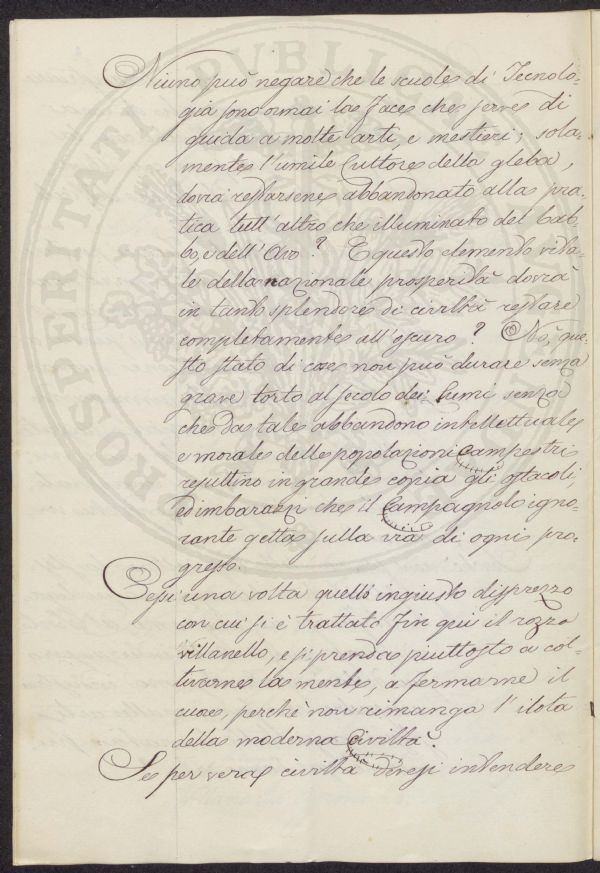 Niuno può negare che le scuole di Tecnolo-
gia sono omai la face che serve di
guida a molte arti, e mestieri; sola-
mente l'umile Cultore della gleba,
dovrà restarsene abbandonato alla pra-
tica tutt'altro che illuminato del bab-
bo, e dell'Avo? E questo elemento vita-
le della nazionale prosperità dovrà
in tanto splendore di civiltà restare
completamente all'oscuro? No, que-
sto stato di cose non può durare senza
grave torto al secolo dei lumi senza
che da tale abbandono intellettuale
e morale delle popolazioni Campestri
resultino in grande copia gli ostacoli,
ed imbarazzi che il Campagnolo igno-
rante getta sulla via di ogni pro-
gresso.
Cessi una volta quello ingiusto disprezzo
con cui si è trattato fin qui il rozzo
villanello, e si prenda piuttosto a col-
tivarne la mente, a formarne il
cuore, perchè non rimanga l'ilota
della moderna Civiltà.
Se per vera civiltà devesi intendere
PROSPERITATI PVBLICAE